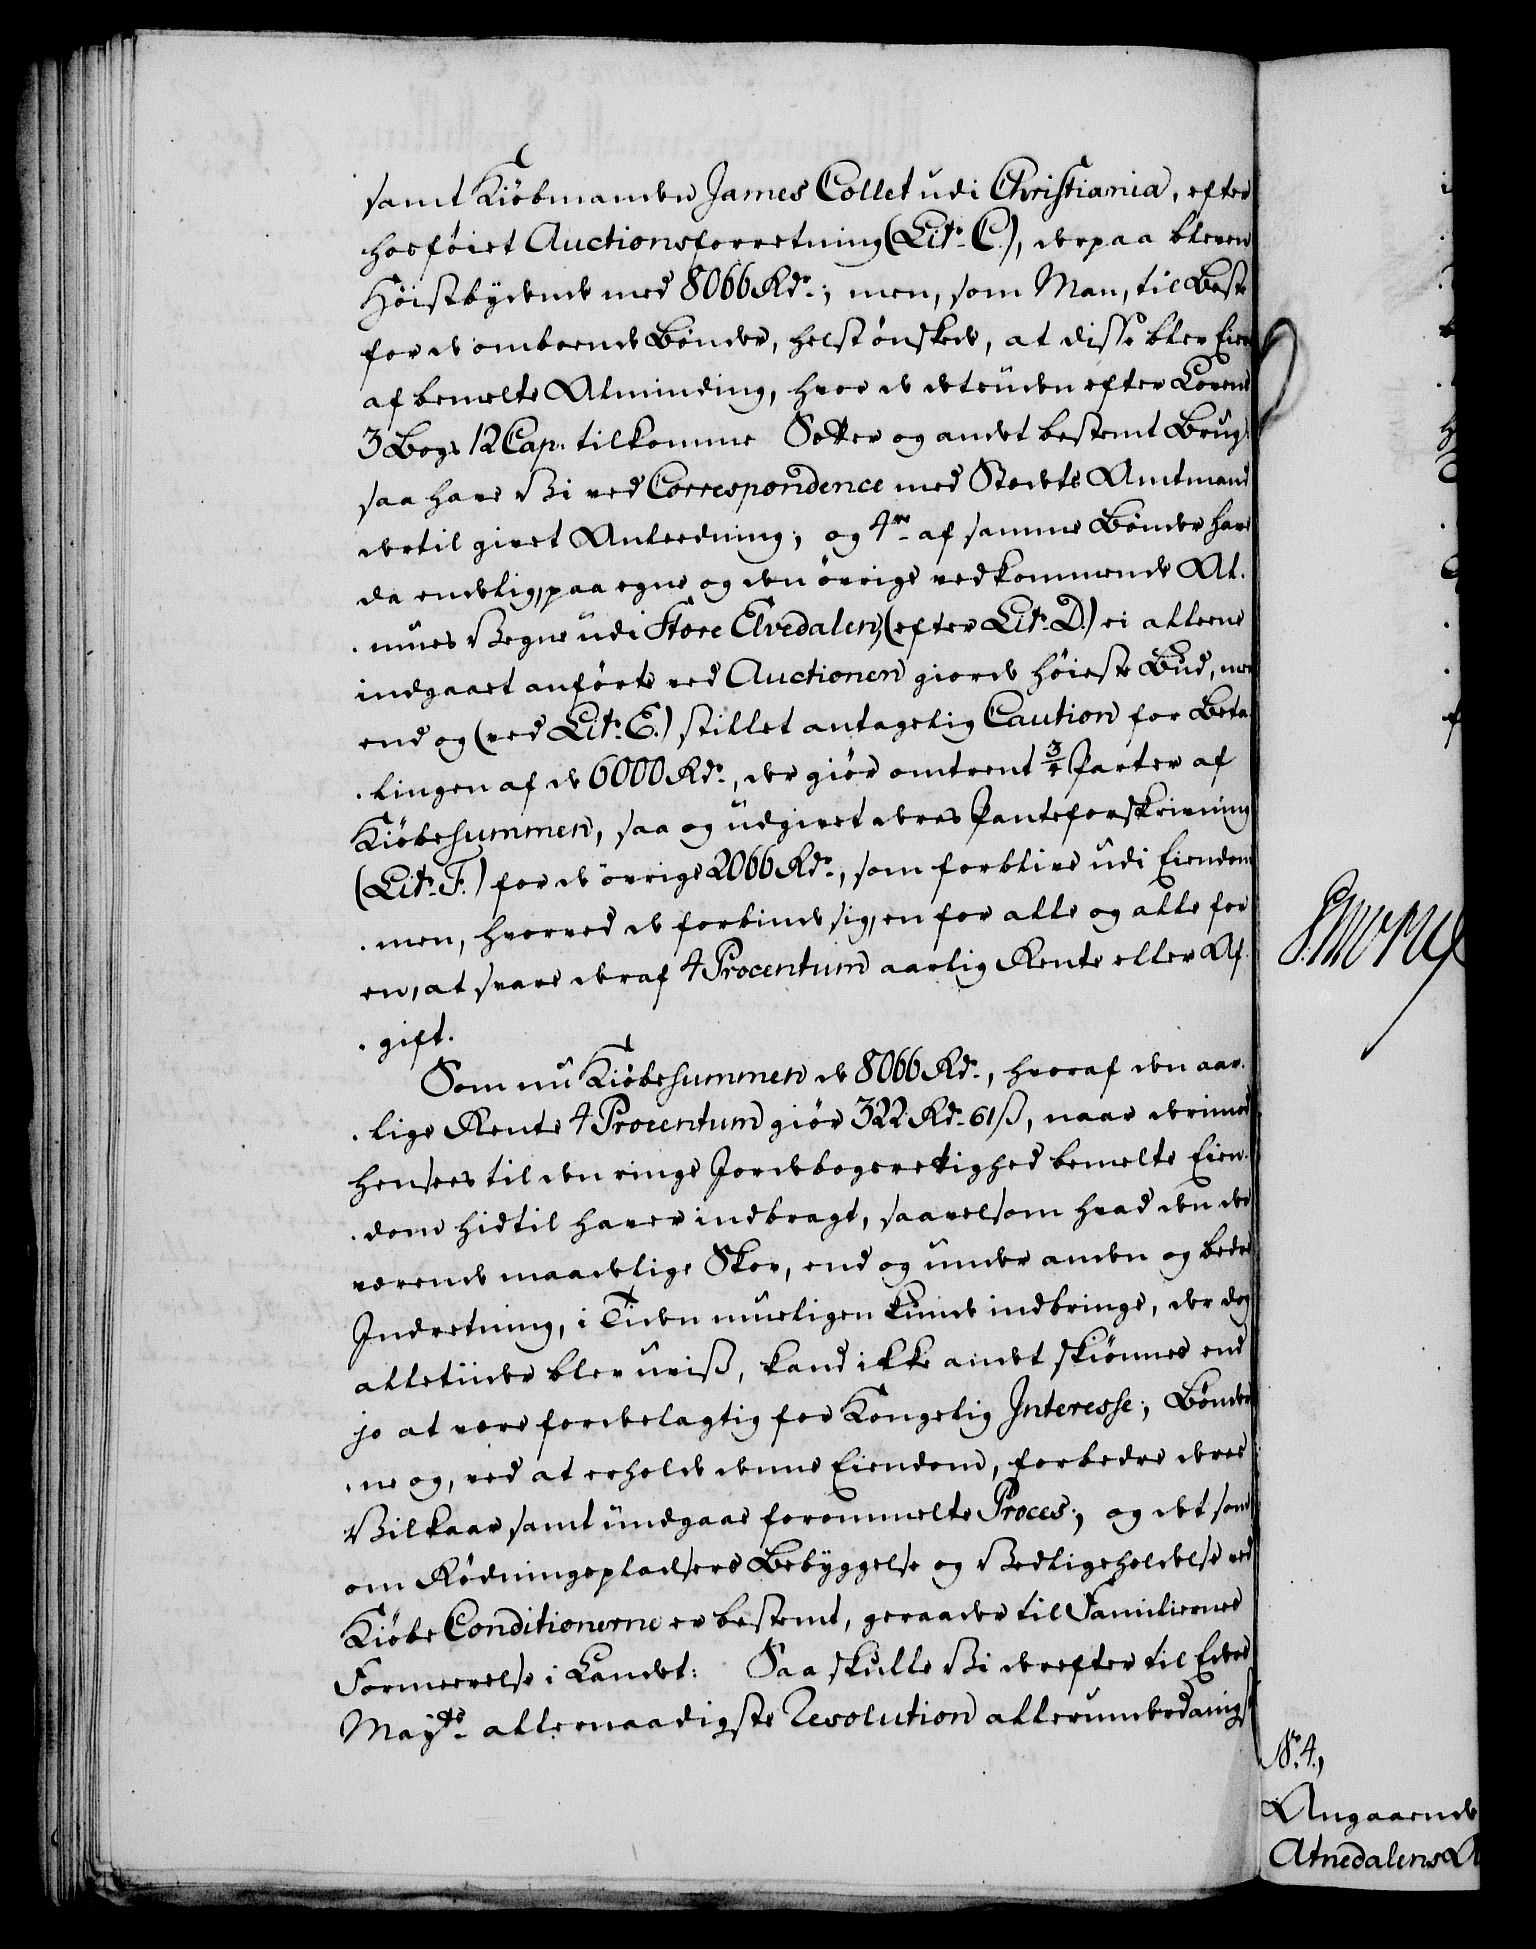 samt Kiöbmanden James Collet udi Christiania, efter
hosföiet Auctionsforretning (Litr. C.), derpaa bleven
Höistbydende med 8066 Rdr.; men, som Man, til Beste
for de omboende Bönder, helst önskede, at disse blev Eier
af bemelte Alminding, hvor de desuden efter Lovens
3 Bogs 12 Cap. tilkomme Setter og andet bestemt Brug,
saa have Vi ved Correspondence med Stedets Amtmand
dertil givet Anledning; og 4re af samme Bönder have
da endelig, paa egne og den övrige vedkommende Al-
mues Vegne udi Store Elvedalen, (efter Litr. D.) ei alleene
indgaaet anförte ved Auctionen giorde höieste Bud, men
end og (ved Litr. E.) stillet antagelig Caution for Beta-
lingen af de 6000 Rdr., der giör omtrent 3/4 Parter af
Kiöbesummen, saa og udgivet deres Panteforskrivning
(Litr. F.) for de övrige 2066 Rdr., som forblive udi Eiendom-
men, hvorved de forbinde sig, en for alle og alle for
en, at svare deraf 4 Procentum aarlig Rente eller Af-
gift.
Som nu Kiöbesummen de 8066 Rdr., hvoraf den aar-
lige Rente 4 Procentum giör 322 Rdr. 61 ß, naar derimod
hensees til den ringe Jordebogsrettighed bemelte Eien-
dom hidtil haver indbragt, saavelsom hvad den der
værende maadelige Skov, end og under anden og bedre
Indretning, i Tiden mueligen kunde indbringe, der dog
alletider blev uviß, kand ikke andet skiönnes end
jo at være fordelagtig for Kongelig Interesse; Bönder-
ne og, ved at erholde denne Eiendom, forbedre deres
Vilkaar samt undgaae forommelte Proces; og det som
om Rödningspladsers Bebyggelse og Vedligeholdelse ved
Kiöbe Conditionerne er bestemt, geraader til Familiernes
Formeerelse i Landet: Saa skulle Vi derefter til Eders
Mayts. allernaadigste Resolution allerunderdanigst
No. 4,
Angaaende
Atnedalens A